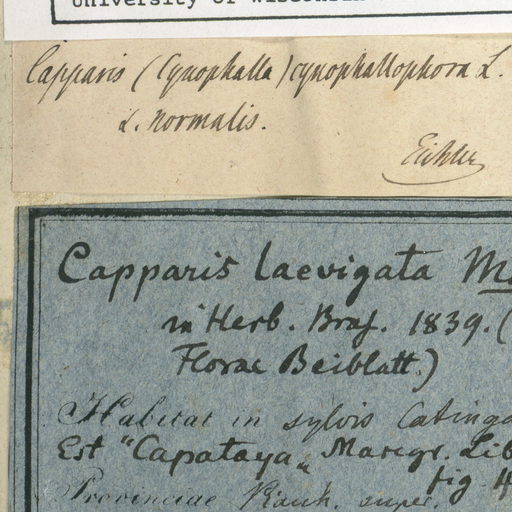 University of Wisconsin
Capparis (Cynophalla) cynophallophora L.
L. normalis.
Eichler
Capparis laevigata
in Herb. Bras. 1839. (
Florae Beiblatt.)
Habitat in sylvis Catinga
Est "Capataya" Marcgr. Lib
fig. 4
Provinciae Piauh. super.